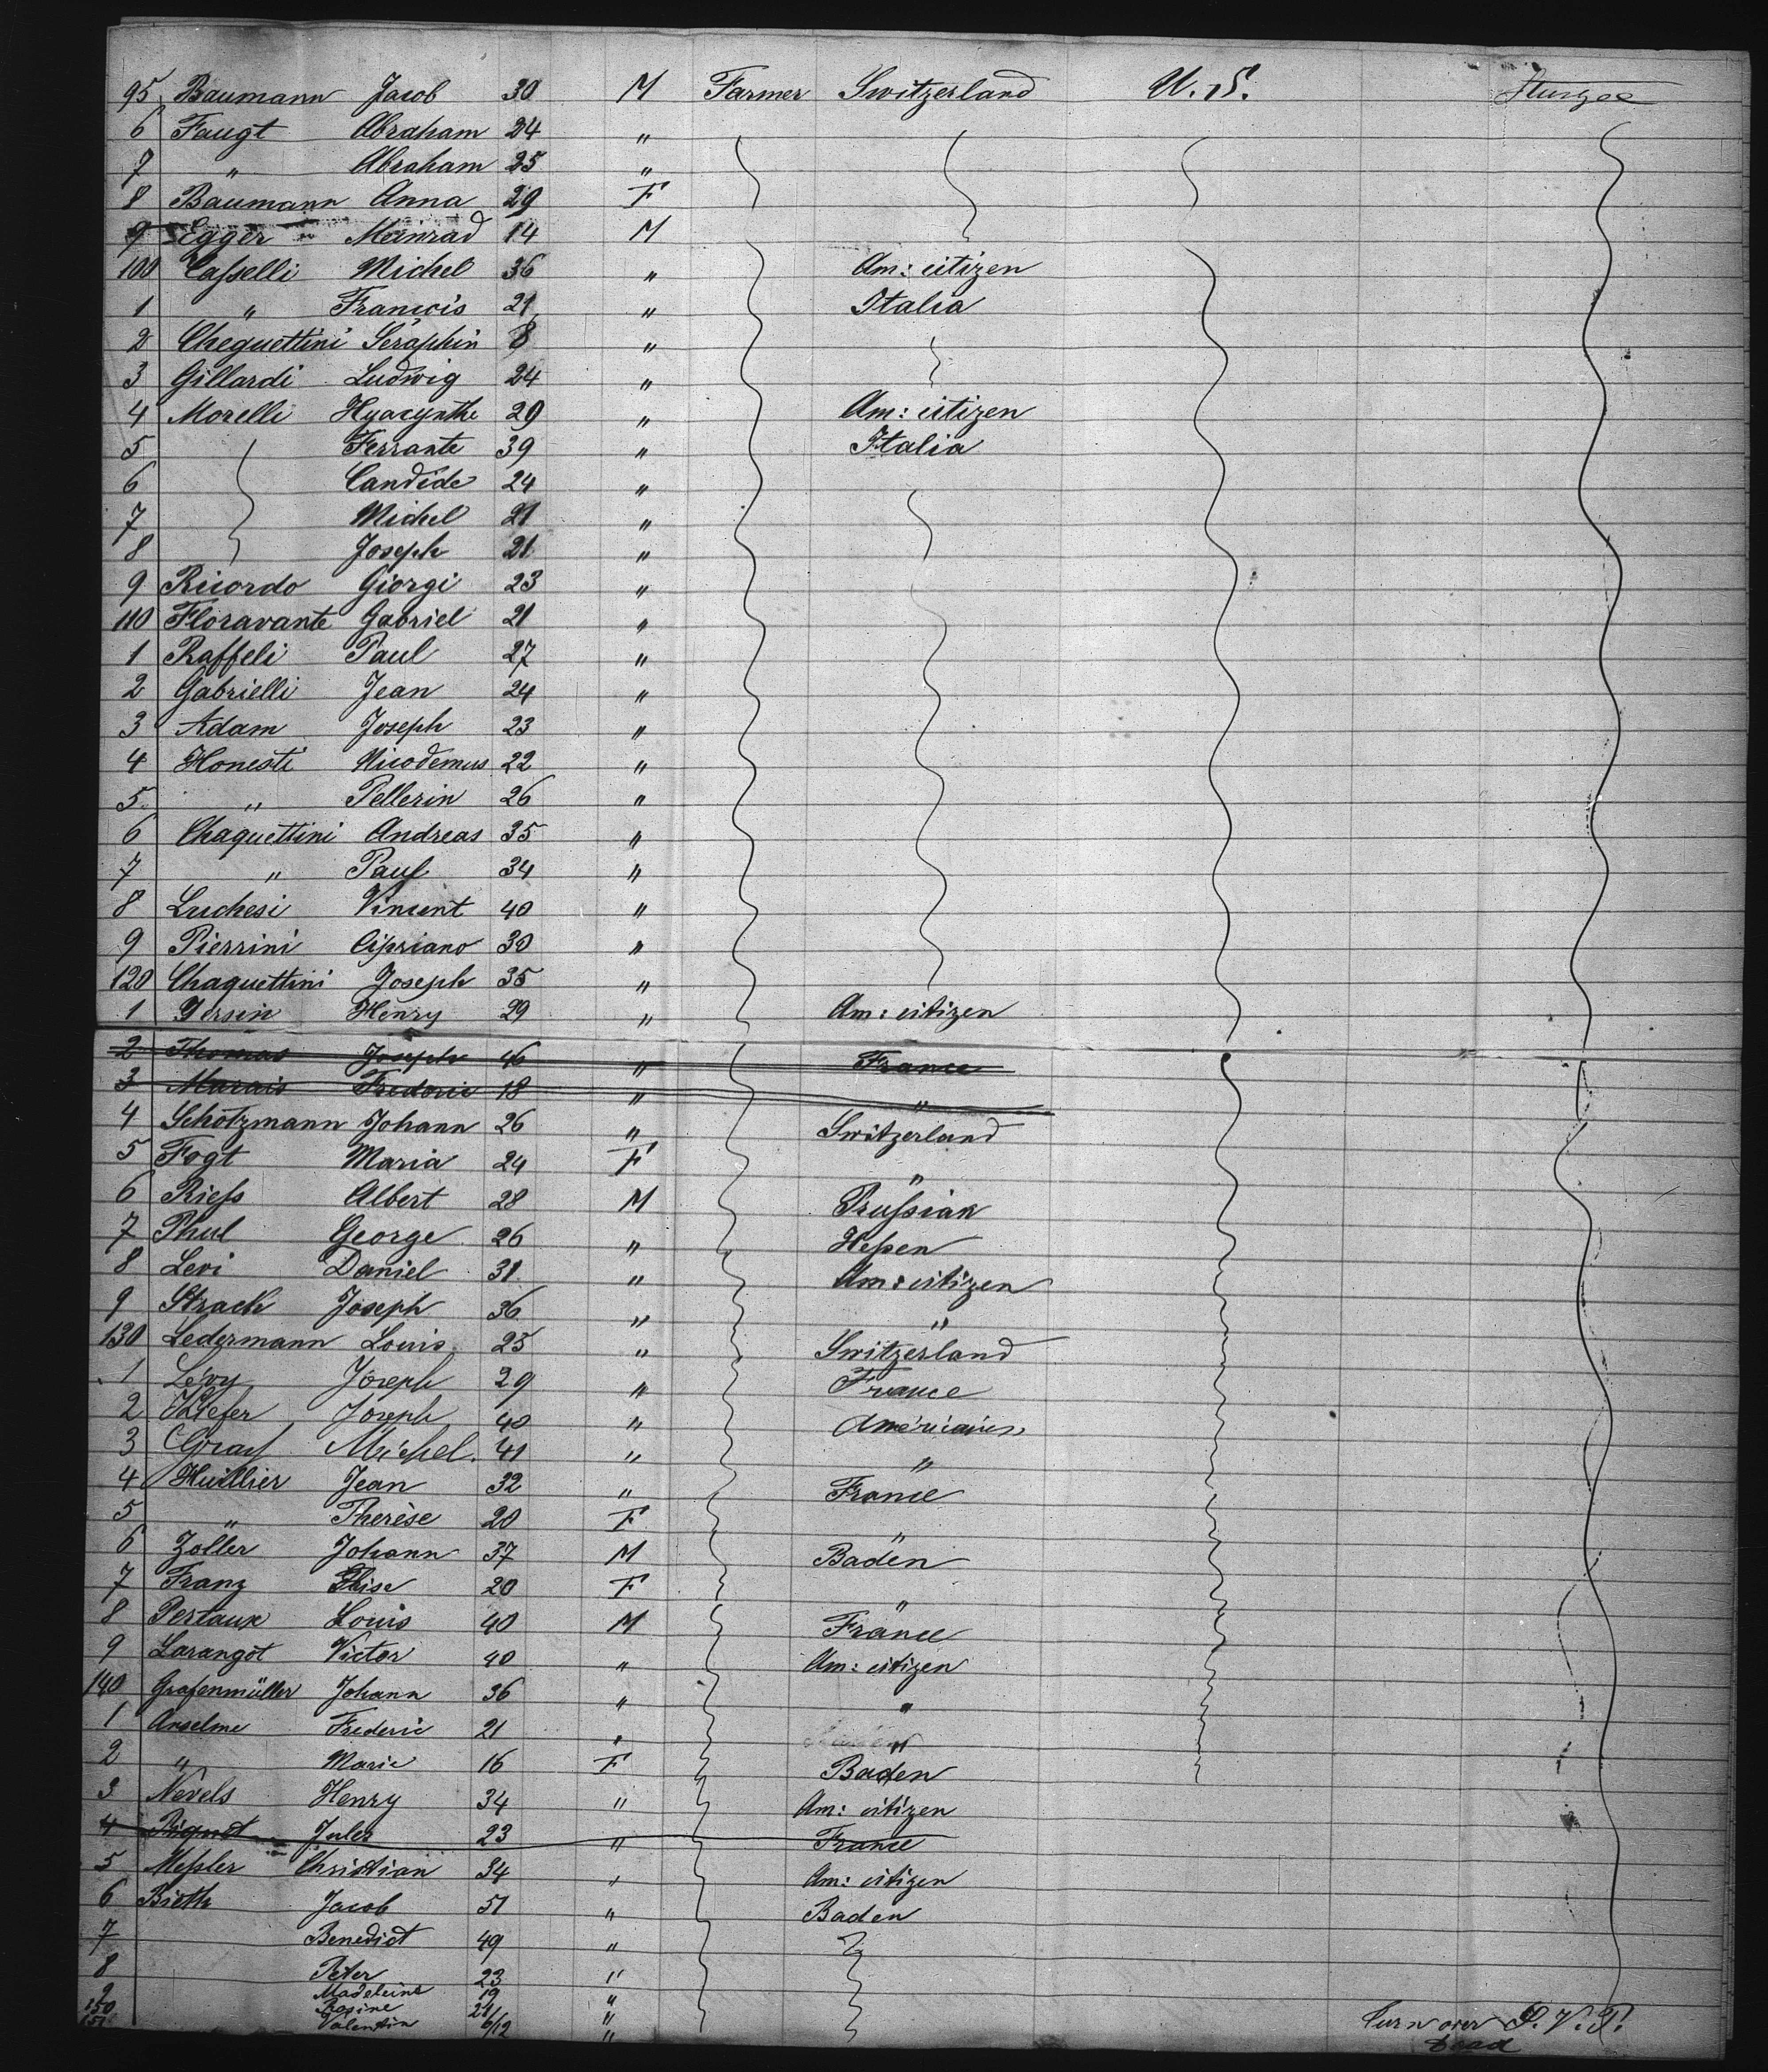 95 Baumann Jacob 30 M Farmer Switzerland U.S.
6 Faugt Abraham 24 "
7 " Abraham 25 "
8 Baumann Anna 29 F
9 Egger Meinrad 14 M
100 Caſselli Michel 36 " Am: citizen
1 " François 21 " Italia
2 Cheguettini Séraphin 8 "
3 Gillardi Ludwig 24 "
4 Morelli Hyacynthe 29 " Am: citizen
5 Ferrante 39 " Italia
6 Candide 24 "
7 Michel 21 "
8 Joseph 21 "
9 Ricordo Giorgi 23 "
110 Floravante Gabriel 21 "
1 Raffeli Paul 27 "
2 Gabrielli Jean 24 "
3 Adam Joseph 23 "
4 Honesti Nicodemus 22 "
5 " Pellerin 26 "
6 Chaquettini Andreas 35 "
7 " Paul 34 "
8 Luchesi Vincent 40 "
9 Pierrini Cipriano 30 "
120 Chaquettini Joseph 35 "
1 Gersin Henry 29 " Am: citizen
2 Thomas Joseph 46 " France
3 Marais Frederic 18 " "
4 Schotzmann Johann 26 " Switzerland
5 Fogt Maria 24 F "
6 Rieſs Albert 28 M Pruſsian
7 Phul George 26 " Heſsen
8 Levi Daniel 31 " Am: citizen
9 Strack Joseph 36 " "
130 Ledermann Louis 23 " Switzerland
1 Lévy Joseph 29 " France
2 Kiefer Joseph 40 "
3 Graf Michel 41 " "
4 Huillier Jean 32 " France
5 " Therèse 20 F "
6 Zoller Johann 37 M Baden
7 Franz Elise 20 F "
8 Pertaux Louis 40 M France
9 Larangot Victor 40 " Am: citizen
140 Grafenmüller Johann 36 " "
1 Anselme Frederic 21 " "
2 " Marie 16 F Baden
3 Nevels Henry 34 " Am: citizen
4 Jules 23 " France
5 Meſsler Christian 34 " Am: citizen
6 Bieth Jacob 51 " Baden
7 Benedict 49 "
8 Peter 23 "
9 Madeleine 19 "
150 Rosine 21 "
151 Valentin 6/12 "
turn over P.V.T.